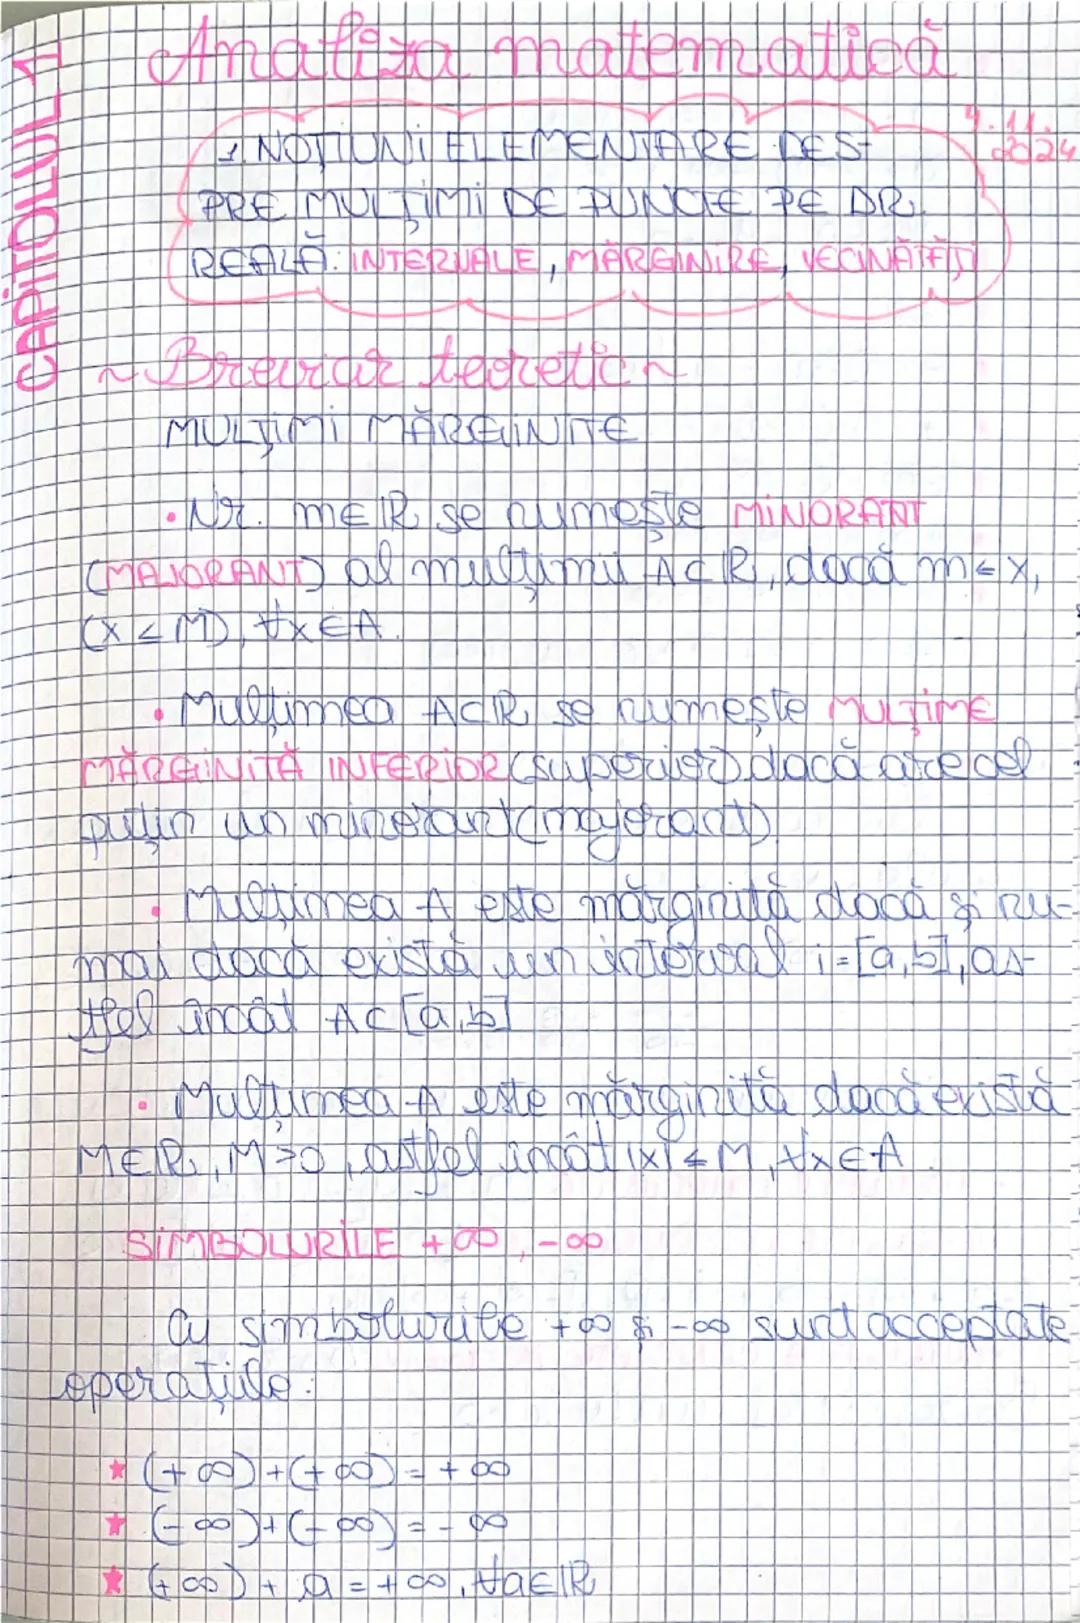 CAPITOLUL 1
Analiza matematică
4.11.
2024
1. NOȚIUNI ELEMENTARE DES-
PRE MULȚIMI DE PUNCTE PE DR.
REALĂ: INTERVALE, MĂRGINIRE, VECINĂTĂȚI
~ Breviar teoretic ~
MULȚIMI MĂRGINITE
• Nr. m∈ℝ se numește MINORANT
(MAJORANT) al mulțimii A⊂ℝ, dacă m≤x,
(x≤M), ∀x∈A.
• Mulțimea A⊂ℝ se numește MULȚIME
MĂRGINITĂ INFERIOR (superior) dacă are cel
puțin un minorant (majorant).
• Mulțimea A este mărginită dacă și nu-
mai dacă există un interval i=[a,b], as-
tfel încât A⊂[a,b]
• Mulțimea A este mărginită dacă există
M∈ℝ, M>0, astfel încât |x|≤M, ∀x∈A.
SIMBOLURILE +∞, -∞
Cu simbolurile +∞ și -∞ sunt acceptate
operațiile:
★ (+∞)+(+∞)=+∞
★ (-∞)+(-∞)=-∞
★ (+∞)+a=+∞, ∀a∈ℝ